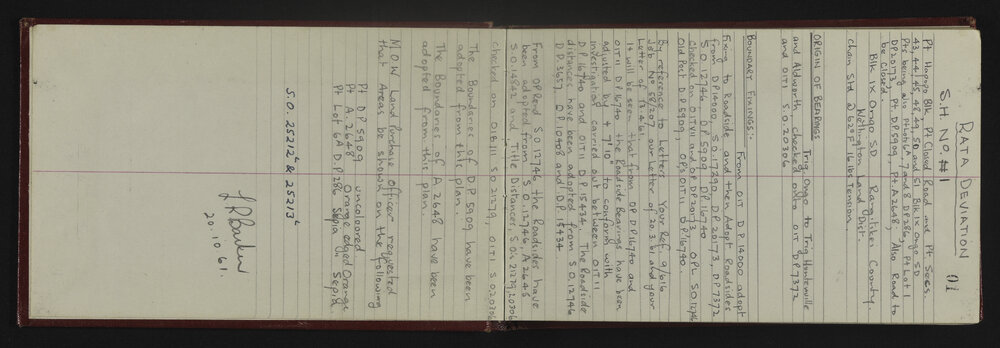 RATA DEVIATION
S.H No. #1
Pt Hopogo Blk Pt Closed Road and Pt Secs.
43, 44, 45, 48, 49, 50 and 51 Blk IX Ongo SD
Pts being also Pt Lots 7 and 8 DP 286, Pt Lot 1
DP 20173 Pt DP 5909, Pt A. 2648, Also Road to
be Closed.
Blk IX Ongo S.D. Rangitikei County
Wellington Land Dist.
Chain Std @ 62°F 16 lbs Tension
ORIGIN OF BEARINGS
Trig Ongo to Trig Hunterville
and Aldworth checked onto OIT DP 7372
and OIT I S.O. 20306
BOUNDARY FIXINGS:-
From OIT D.P. 14000 adopt
Fixing to Roadside and then Adopt Roadsides
from D.P. 14000, S.O. 17390, DP 20173, DP 7372
S.O. 12746 D.P. 5909, D.P. 16740
Checked on OIT VII and DP 20173, OPL S.O. 12746
Old Post D.P. 5909, OPs OIT II D.P. 16740.
By reference to Letters Your Ref. 9/616
Job No 58/207 our Letter of 30.3.61 and your
Letter of 13.4.61
it will be seen that from OP D.P. 16740 and
OIT II D.P. 16740 the Roadside Bearings have been
adjusted by + 7' 10" to conform with
investigation carried out between OIT II
D.P. 16740 and OIT II D.P. 15434. The Roadside
distances have been adopted from S.O. 12746
D.P. 3657, D.P. 10908 and D.P. 15434
From OP Rend S.O. 12746 the Roadsides have
been adopted from S.O. 12746, A 2648
S.O. 14842 and Title Distances, S.O.s 21279, 20306
checked on OIB III S.O. 21279, OIT I S.O. 20306
The Boundaries of DP 5909 have been
adopted from this plan.
The Boundaries of A 2648 have been
adopted from this plan.
M.O.W Land Purchase Officer requested
that Areas be shown on the following
Pt DP 5909 uncoloured
Pt A. 2648 Orange edged Orange
Pt Lot 6A D.P. 286 Sepia Sepia
20.10.61.
S.O. 25212 & 25213